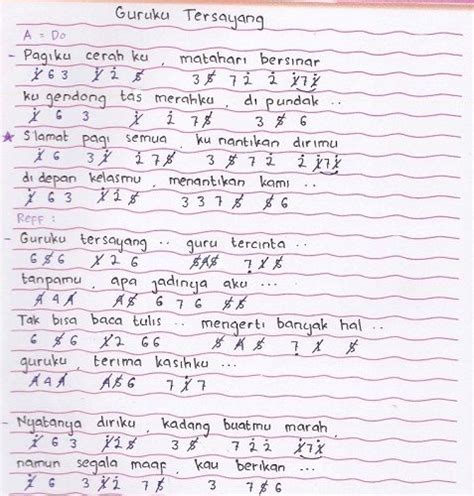 Guruku Tersayang
A = Do
- Pagiku cerah ku, matahari bersinar
1̸ 6 3 1̸ 2̇ 5̸ 3 5̸ 7 2̇ 2̇ 1̸ 7 1̸
ku gendong tas merahku, di pundak ..
1̸ 6 3 1̸ 2̇ 7 5̸ 3 5̸ 6
★ Slamat pagi semua, ku nantikan dirimu
1̸ 6 3 1̸ 2̇ 7 5̸ 3 5̸ 7 2̇ 2̇ 1̸ 7 1̸
di depan kelasmu, menantikan kami ..
1̸ 6 3 1̸ 2̇ 5̸ 3 3 7 5̸ 5̸ 6
Reff :
- Guruku tersayang .. guru tercinta ..
6 5̸ 6 1̸ 2 6 5̸ 4̸ 5̸ 7 1̸ 5̸
tanpamu, apa jadinya aku ...
4̸ 4 4̸ 4̸ 5̸ 6 7 6 5̸ 5̸
Tak bisa baca tulis .. mengerti banyak hal ..
6 5̸ 6 1̸ 2 6 6 5̸ 4̸ 5̸ 7 1̸ 5̸
guruku, terima kasihku ...
4̸ 4 4̸ 4̸ 5̸ 6 7 1̸ 7
- Nyatanya diriku, kadang buatmu marah,
1̸ 6 3 1̸ 2̇ 5̸ 3 5̸ 7 2̇ 2̇ 1̸ 7 1̸
namun segala maaf, kau berikan ...
1̸ 6 3 1̸ 2̇ 7 5̸ 3 7 5̸ 6